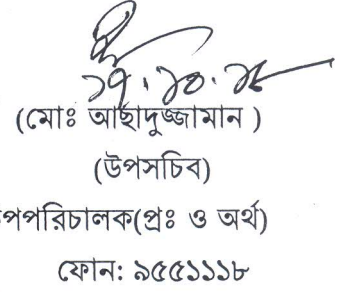 ১৭.১০.১৮
(মোঃ আছাদুজ্জামান )
(উপসচিব)
পপরিচালক(প্রঃ ও অর্থ)
ফোন: ৯৫৫১১১৮